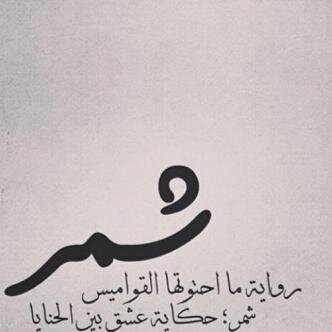 شمر
رواية ما احتوتها القواميس
شمر؛ حكاية عشق بين الحنايا